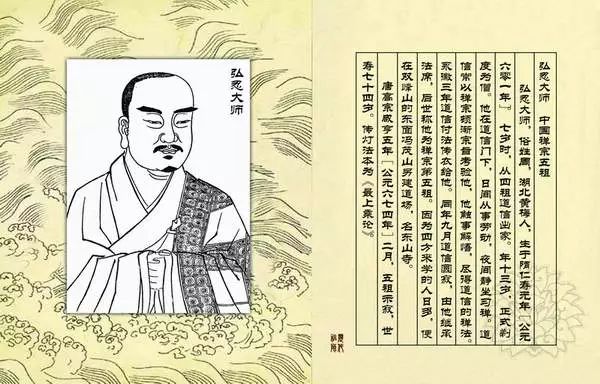 弘忍大师
弘忍大师　中国禅宗五祖
弘忍大师，俗姓周，湖北黄梅人，生于隋仁寿元年「公元
六零一年」。七岁时，从四祖道信出家。年十三岁，正式剃
度为僧。他在道信门下，日间从事劳动，夜间静坐习禅。道
信常以禅宗顿渐宗旨考验他，他触事解悟，尽得道信的禅法。
永徽三年道信付法传衣给他。同年九月道信圆寂，由他继承
法席，后世称他为禅宗第五祖。因为四方来学的人日多，便
在双峰山的东面冯茂山另建道场，名东山寺。
唐高宗咸亨五年「公元六七四年」二月，五祖示寂，世
寿七十四岁。传灯法本为《最上乘论》。